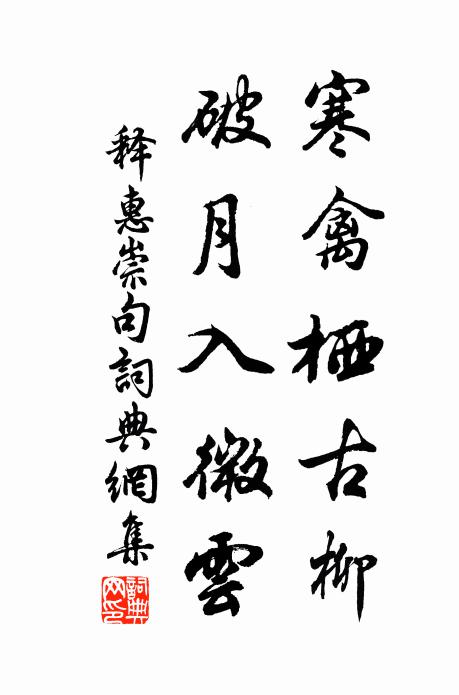 寒禽栖古柳
破月入微雲
释惠崇句詞典網集
詞典網印